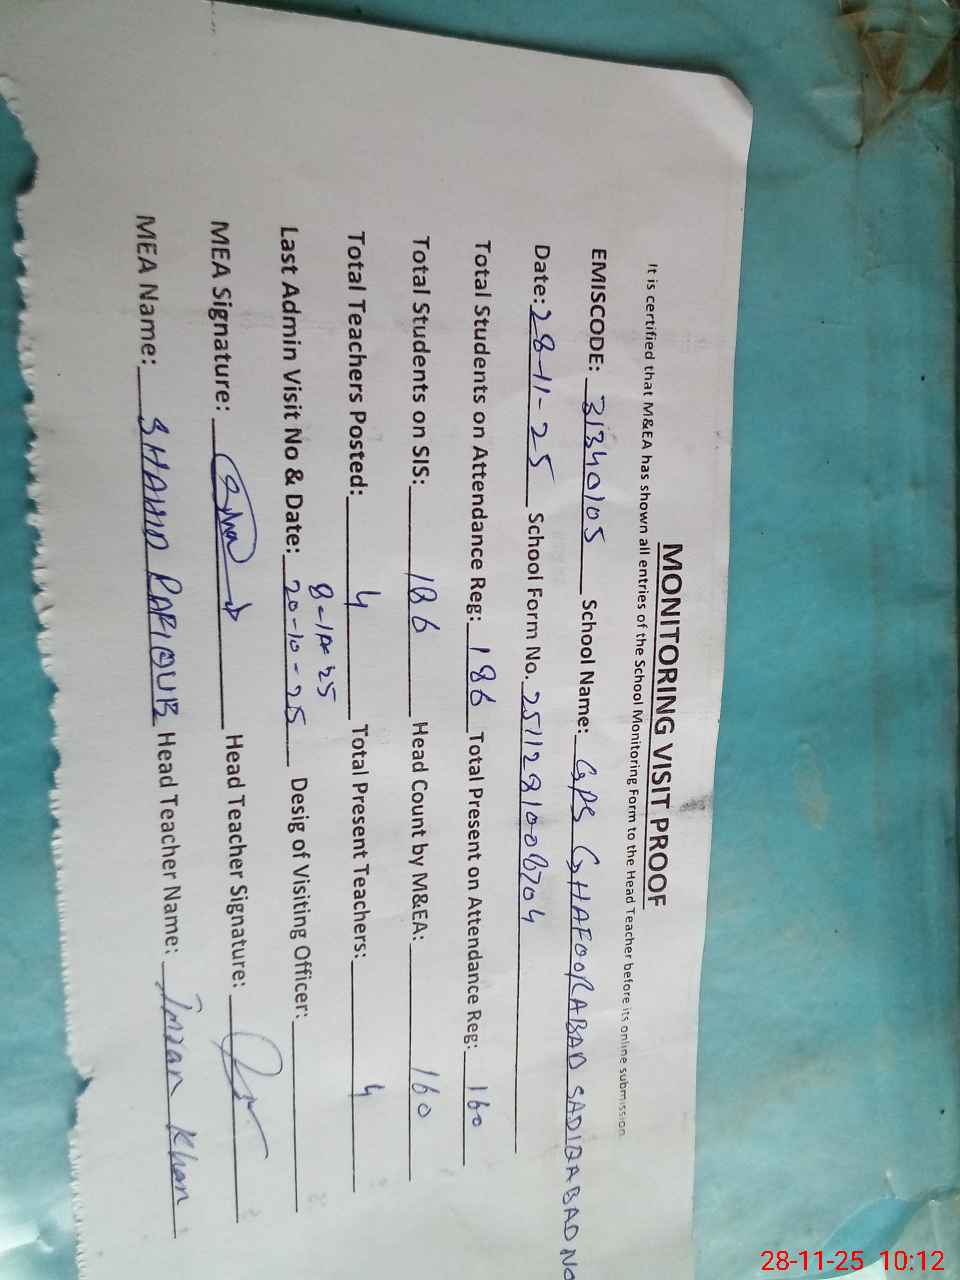 MONITORING VISIT PROOF
It is certified that M&EA has shown all entries of the School Monitoring Form to the Head Teacher before its online submission
EMISCODE: 31340105 School Name: GPS GHAFOORABAD SADIQABAD NO
Date: 28-11-25 School Form No. 2511281008704
Total Students on Attendance Reg: 186 Total Present on Attendance Reg: 160
Total Students on SIS: 186 Head Count by M&EA: 160
Total Teachers Posted: 4 Total Present Teachers: 4
Last Admin Visit No & Date: 20-10-25 Desig of Visiting Officer:
MEA Signature: Head Teacher Signature:
MEA Name: SHAHID Head Teacher Name: Imran Khan
28-11-25 10:12